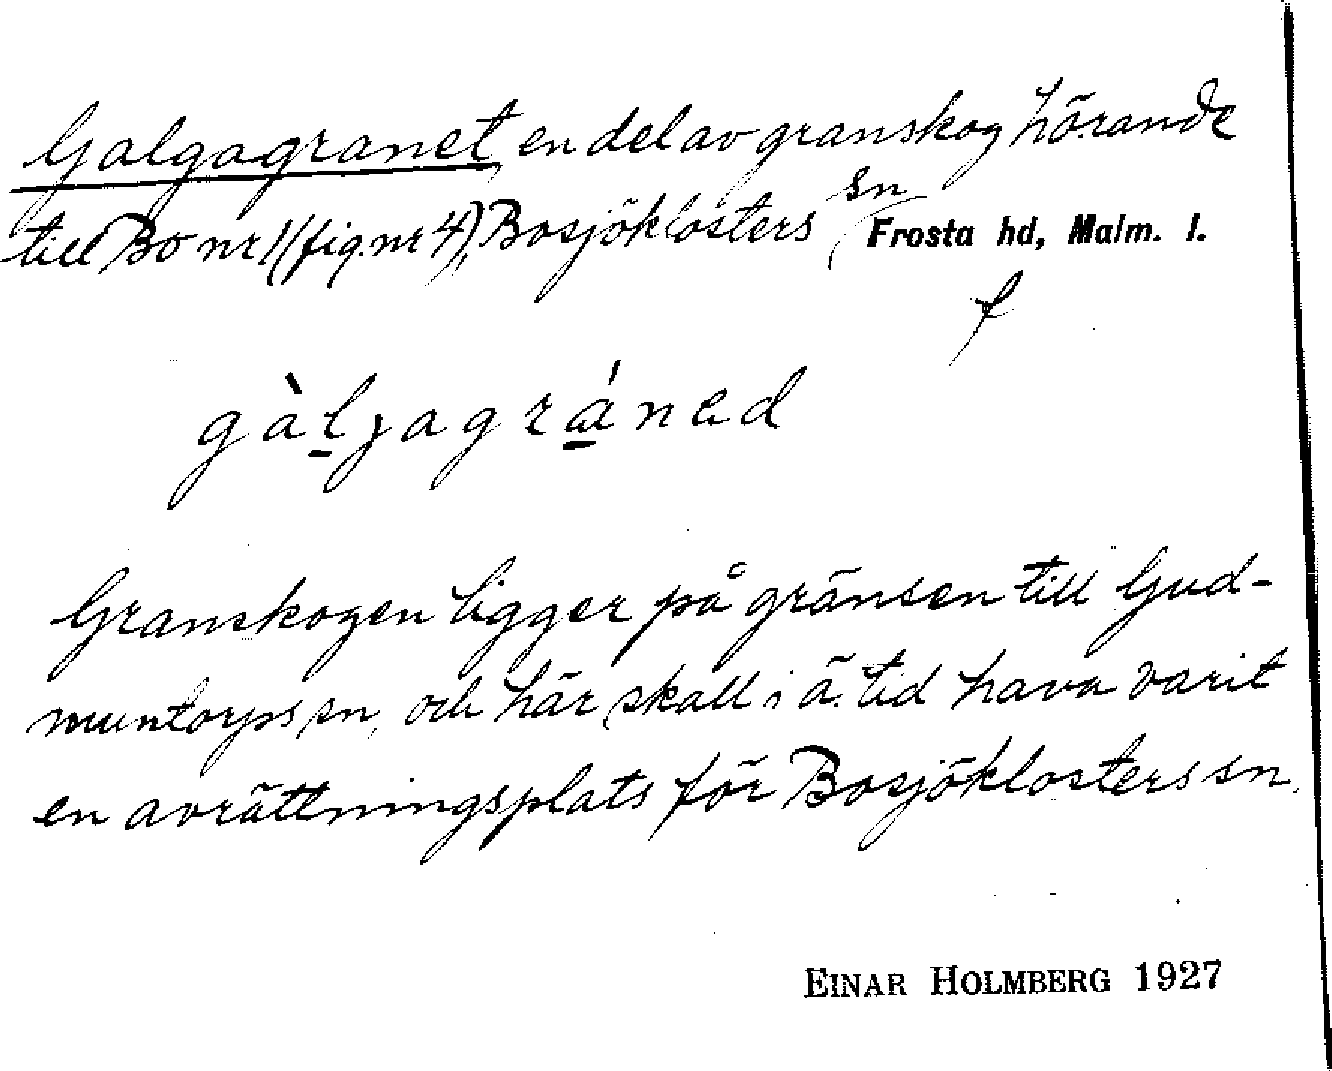 Galgagranet, en del av granskog hörande
till Bo nr 1 (fig. nr 4), Bosjöklosters sn Frosta hd, Malm. l.
f
gàljagráned
Granskogen ligger på gränsen till Gud-
muntorps sn, och här skall i ä. tid hava varit
en avrättningsplats för Bosjöklosters sn.
EINAR HOLMBERG 1927